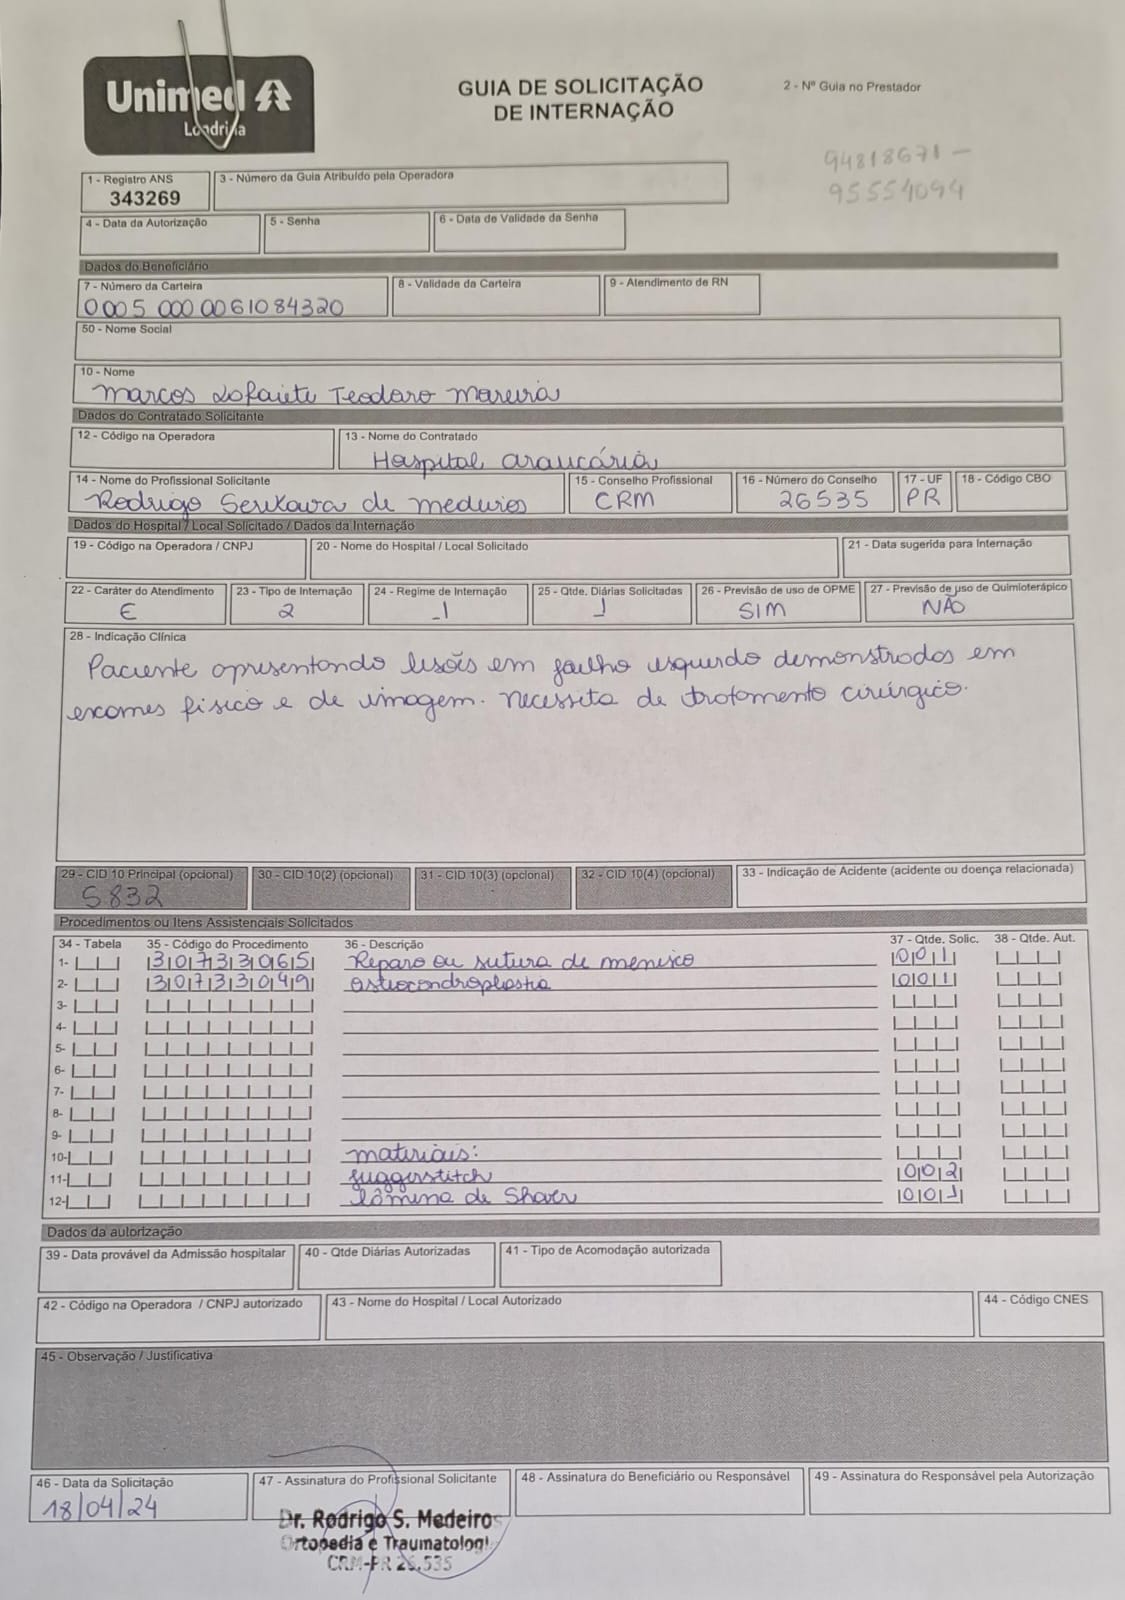 Unimed
Londrina
GUIA DE SOLICITAÇÃO
DE INTERNAÇÃO
2 - Nº Guia no Prestador
94818671 -
95554094
1 - Registro ANS
343269
3 - Número da Guia Atribuído pela Operadora
4 - Data da Autorização
5 - Senha
6 - Data de Validade da Senha
Dados do Beneficiário
7 - Número da Carteira
0005 000 0061084320
8 - Validade da Carteira
9 - Atendimento de RN
50 - Nome Social
10 - Nome
Marcos Lofaiete Teodoro Mareira
Dados do Contratado Solicitante
12 - Código na Operadora
13 - Nome do Contratado
Hospital Araucária
14 - Nome do Profissional Solicitante
Rodrigo Serikawa de medeiros
15 - Conselho Profissional
CRM
16 - Número do Conselho
26535
17 - UF
PR
18 - Código CBO
Dados do Hospital / Local Solicitado / Dados da Internação
19 - Código na Operadora / CNPJ
20 - Nome do Hospital / Local Solicitado
21 - Data sugerida para Internação
22 - Caráter do Atendimento
E
23 - Tipo de Internação
2
24 - Regime de Internação
1
25 - Qtde. Diárias Solicitadas
1
26 - Previsão de uso de OPME
SIM
27 - Previsão de uso de Quimioterápico
NÃO
28 - Indicação Clínica
Paciente apresentando lesões em joelho esquerdo demonstrados em
exames físico e de imagem. necessita de tratamento cirúrgico.
29 - CID 10 Principal (opcional)
S832
30 - CID 10(2) (opcional)
31 - CID 10(3) (opcional)
32 - CID 10(4) (opcional)
33 - Indicação de Acidente (acidente ou doença relacionada)
Procedimentos ou Itens Assistenciais Solicitados
34 - Tabela 35 - Código do Procedimento 36 - Descrição 37 - Qtde. Solic. 38 - Qtde. Aut.
1- 30733065 Reparo ou sutura de menisco 001
2- 30733049 osteocondroplastia 001
3-
4-
5-
6-
7-
8-
9-
10- materiais:
11- juggerstitch 002
12- lâmina de Shaver 001
Dados da autorização
39 - Data provável da Admissão hospitalar
40 - Qtde Diárias Autorizadas
41 - Tipo de Acomodação autorizada
42 - Código na Operadora / CNPJ autorizado
43 - Nome do Hospital / Local Autorizado
44 - Código CNES
45 - Observação / Justificativa
46 - Data da Solicitação
18/04/24
47 - Assinatura do Profissional Solicitante
48 - Assinatura do Beneficiário ou Responsável
49 - Assinatura do Responsável pela Autorização
Dr. Rodrigo S. Medeiros
Ortopedia e Traumatologi
CRM-PR 26.535